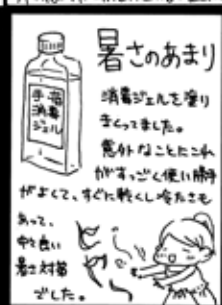 暑さのあまり
手指
消毒
ジェル
消毒ジェルを塗り
まくってました。
意外なことにこれ
がすっごく使い勝手
がよくて、すぐに乾くし冷たさも
あって、
中々良い
暑さ対策
でした。